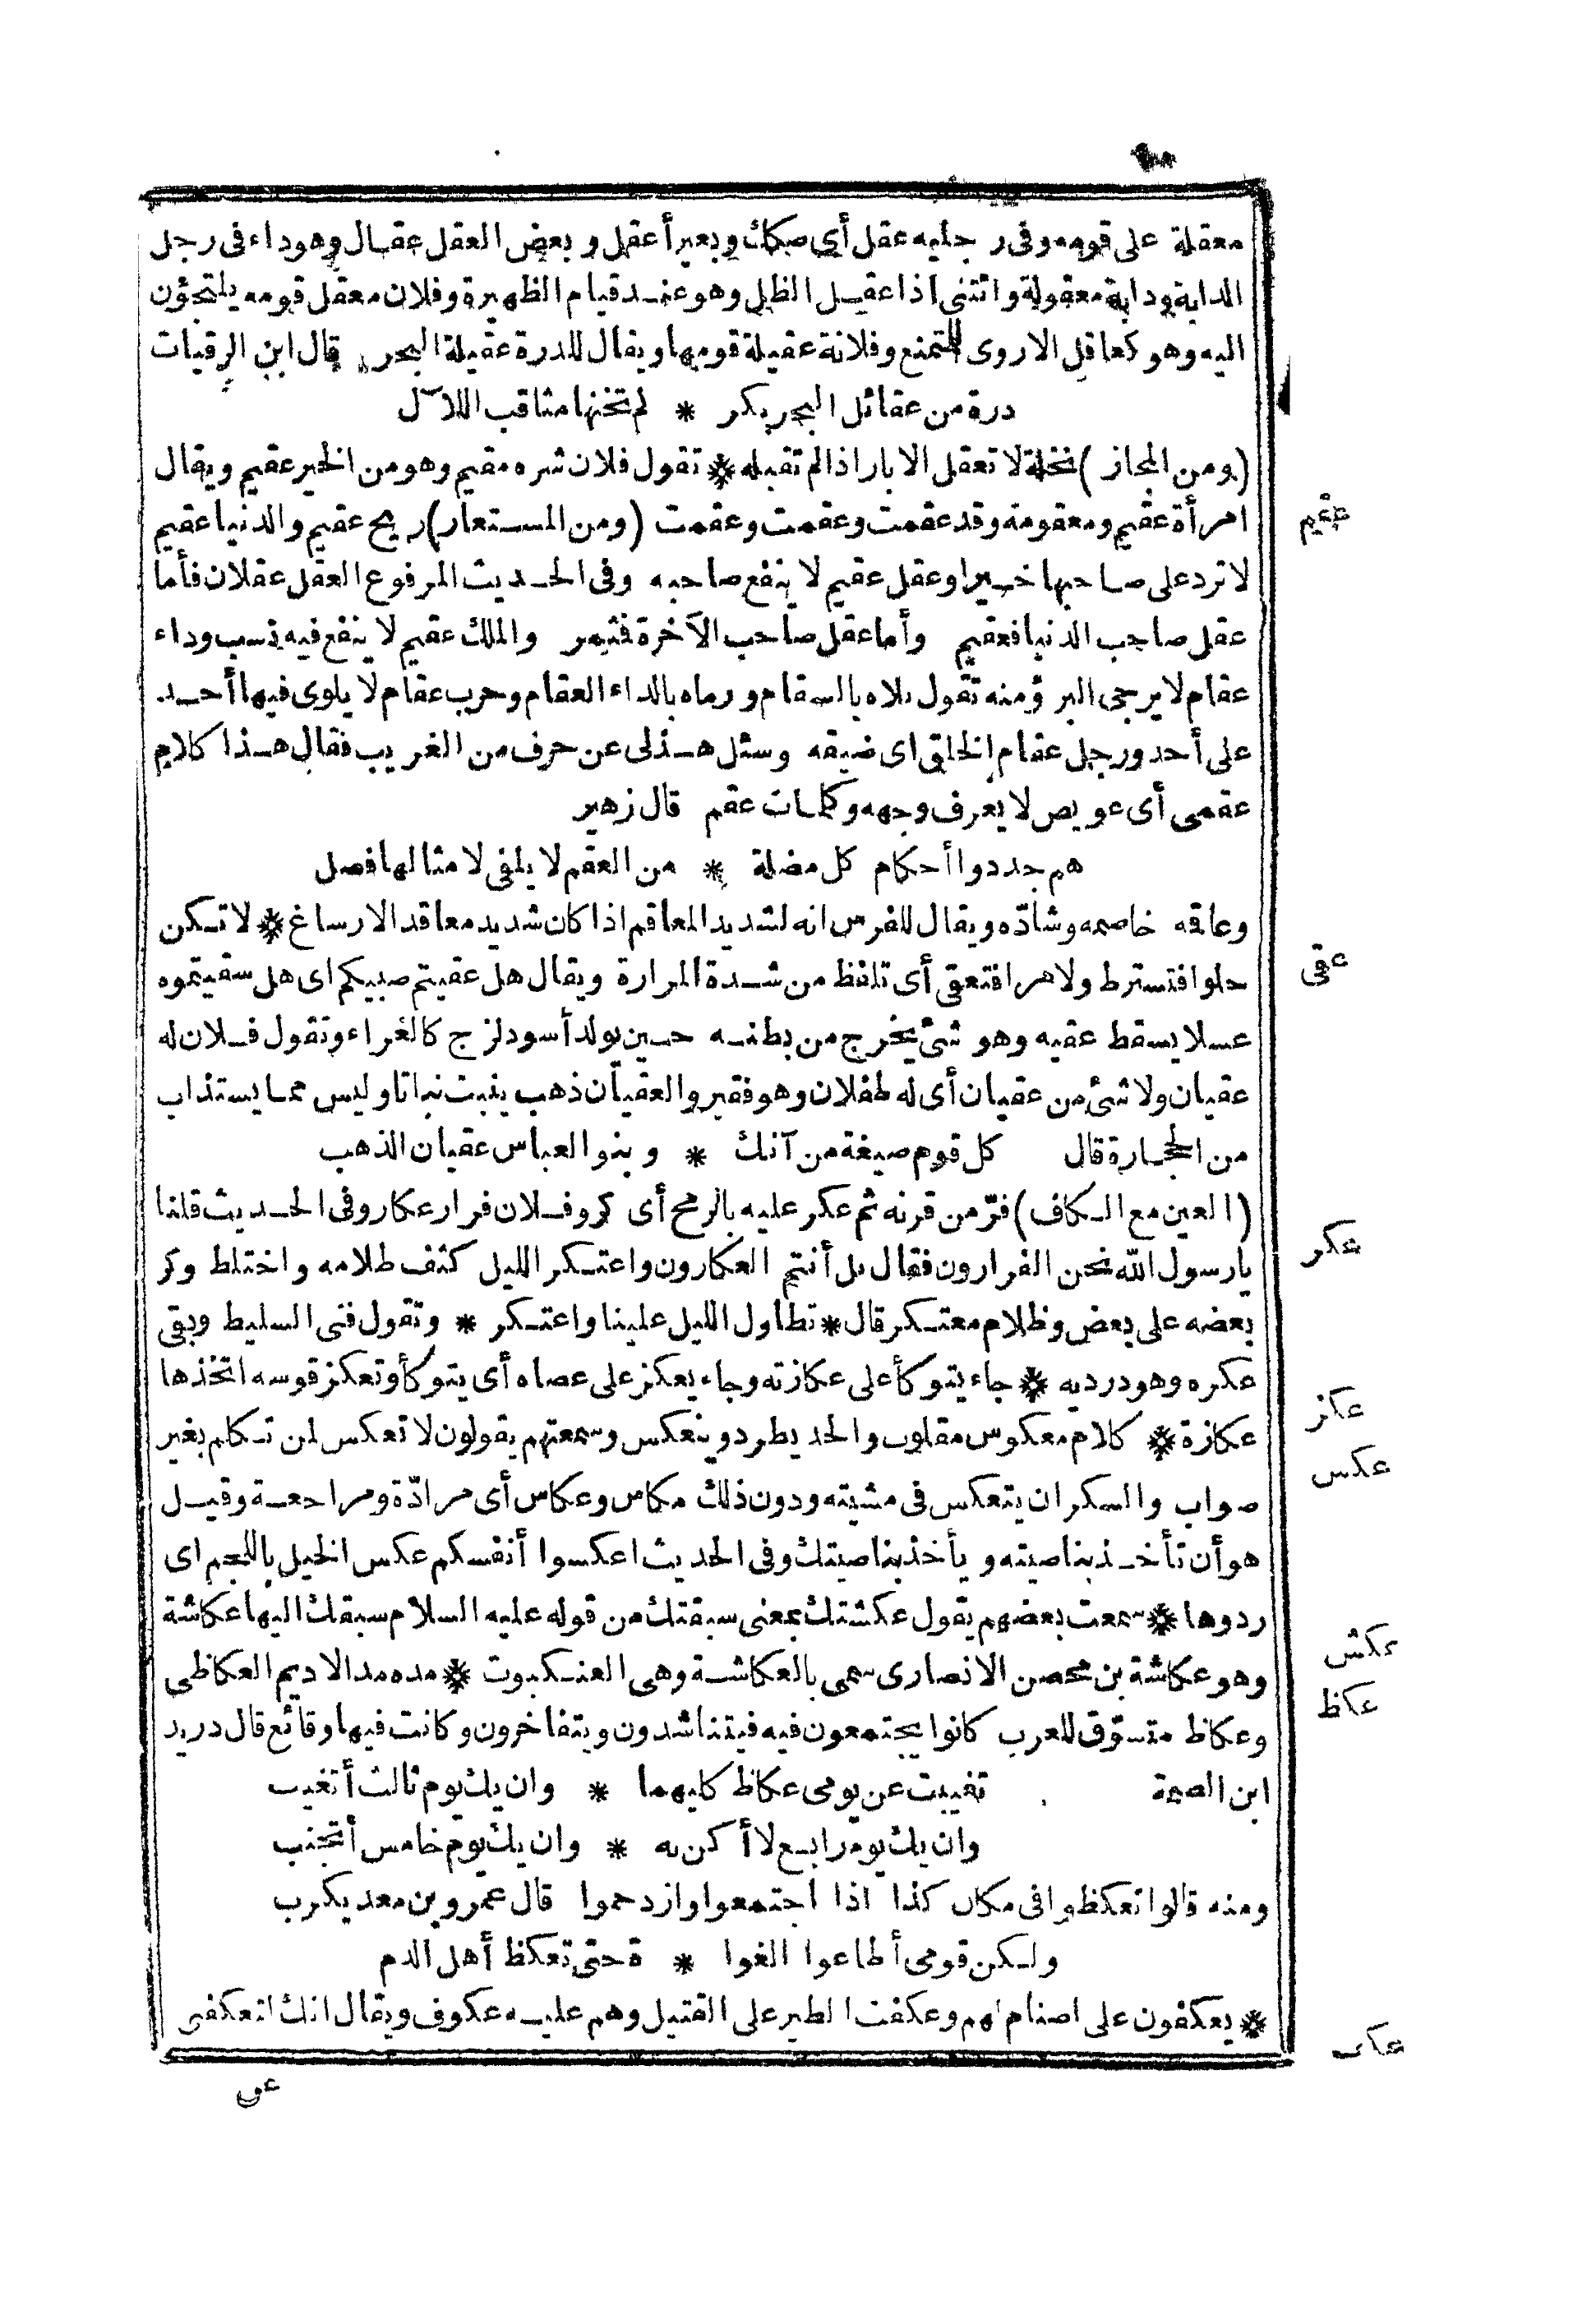 معقلة على قومه وفى رجليه عقل أى صكاك وبعير أعقل وبعض العقل عقال وهو داء فى رجل
الدابة ودابة معقولة وائتنى اذا عقل الظل وهو عند قيام الظهيرة وفلان معقل قومه يلتجؤن
اليه وهو كعاقل الاروى للتمنع وفلانة عقيلة قومها ويقال للدرة عقيلة البحر قال ابن الرقيات
درة من عقائل البحر بكر * لم تخنها مثاقب اللآل
(ومن المجاز) نخلة لا تعقل الابار اذا لم تقبله * تقول فلان شره مقيم وهو من الخير عقيم ويقال
عقيم
امرأة عقيم ومعقومة وقد عقمت وعقمت وعقمت (ومن المستعار) ريح عقيم والدنيا عقيم
لا ترد على صاحبها خيرا وعقل عقيم لا ينفع صاحبه وفى الحديث المرفوع العقل عقلان فأما
عقل صاحب الدنيا فعقيم وأما عقل صاحب الآخرة فثمر والملك عقيم لا ينفع فيه نسب وداء
عقام لا يرجى البرؤ منه تقول بلاه بالسقام ورماه بالداء العقام وحرب عقام لا يلوى فيها أحد
على أحد ورجل عقام الخلق اى ضيقه وسئل هذلى عن حرف من الغريب فقال هذا كلام
عقمى أى عويص لا يعرف وجهه وكلمات عقم قال زهير
هم جددوا أحكام كل مضلة * من العقم لا يلفى لامثالها فصل
وعاقه خاصمه وشادّه ويقال للفرس انه لشديد المعاقم اذا كان شديد معاقد الارساغ * لا تكن
عقى
حلوا فتسترط ولا مرا فتعقى أى تلفظ من شدة المرارة ويقال هل عقيتم صبيكم اى هل سقيتموه
عسلا يسقط عقيه وهو شئ يخرج من بطنه حين يولد أسود لزج كالغراء وتقول فلان له
عقيان ولا شئ من عقيان أى له طفلان وهو فقير والعقيان ذهب ينبت نباتا وليس مما يستذاب
من الحجارة قال كل قوم صيغة من آنك * وبنو العباس عقيان الذهب
(العين مع الكاف) فرّ من قرنه ثم عكر عليه بالرمح أى كر وفلان فرار عكار وفى الحديث قلنا
عكر
يا رسول الله نحن الفرارون فقال بل أنتم العكارون واعتكر الليل كثف ظلامه واختلط وكر
بعضه على بعض وظلام معتكر قال * تطاول الليل علينا واعتكر * وتقول فنى السليط وبقى
عكره وهو درديه * جاء يتوكأ على عكازته وجاء يعكز على عصاه أى يتوكأ وتعكز قوسه اتخذها
عكز
عكازة * كلام معكوس مقلوب والحد يطرد وينعكس وسمعتهم يقولون لا تعكس لمن تكلم بغير
عكس
صواب والسكران يتعكس فى مشيته ودون ذلك مكاس وعكاس أى مرادّة ومراجعة وقيل
هو أن تأخذ بناصيته ويأخذ بناصيتك وفى الحديث اعكسوا أنفسكم عكس الخيل باللجم اى
ردوها * سمعت بعضهم يقول عكشتك بمعنى سبقتك من قوله عليه السلام سبقك اليها عكاشة
عكش
وهو عكاشة بن محصن الانصارى سمى بالعكاشة وهى العنكبوت * مده مد الاديم العكاظى
عكظ
وعكاظ متسوّق للعرب كانوا يجتمعون فيه فيتناشدون ويتفاخرون وكانت فيها وقائع قال دريد
ابن الصمة تغيبت عن يومى عكاظ كليهما * وان يك يوم ثالث أتغيب
وان يك يوم رابع لا أكن به * وان يك يوم خامس أتجنب
ومنه قالوا تعكظوا فى مكان كذا اذا اجتمعوا وازدحموا قال عمرو بن معد يكرب
ولكن قومى أطاعوا الغوا * ة حتى تعكظ أهل الدم
* يعكفون على اصنام لهم وعكفت الطير على القتيل وهم عليه عكوف ويقال انك لتعكفنى
عن